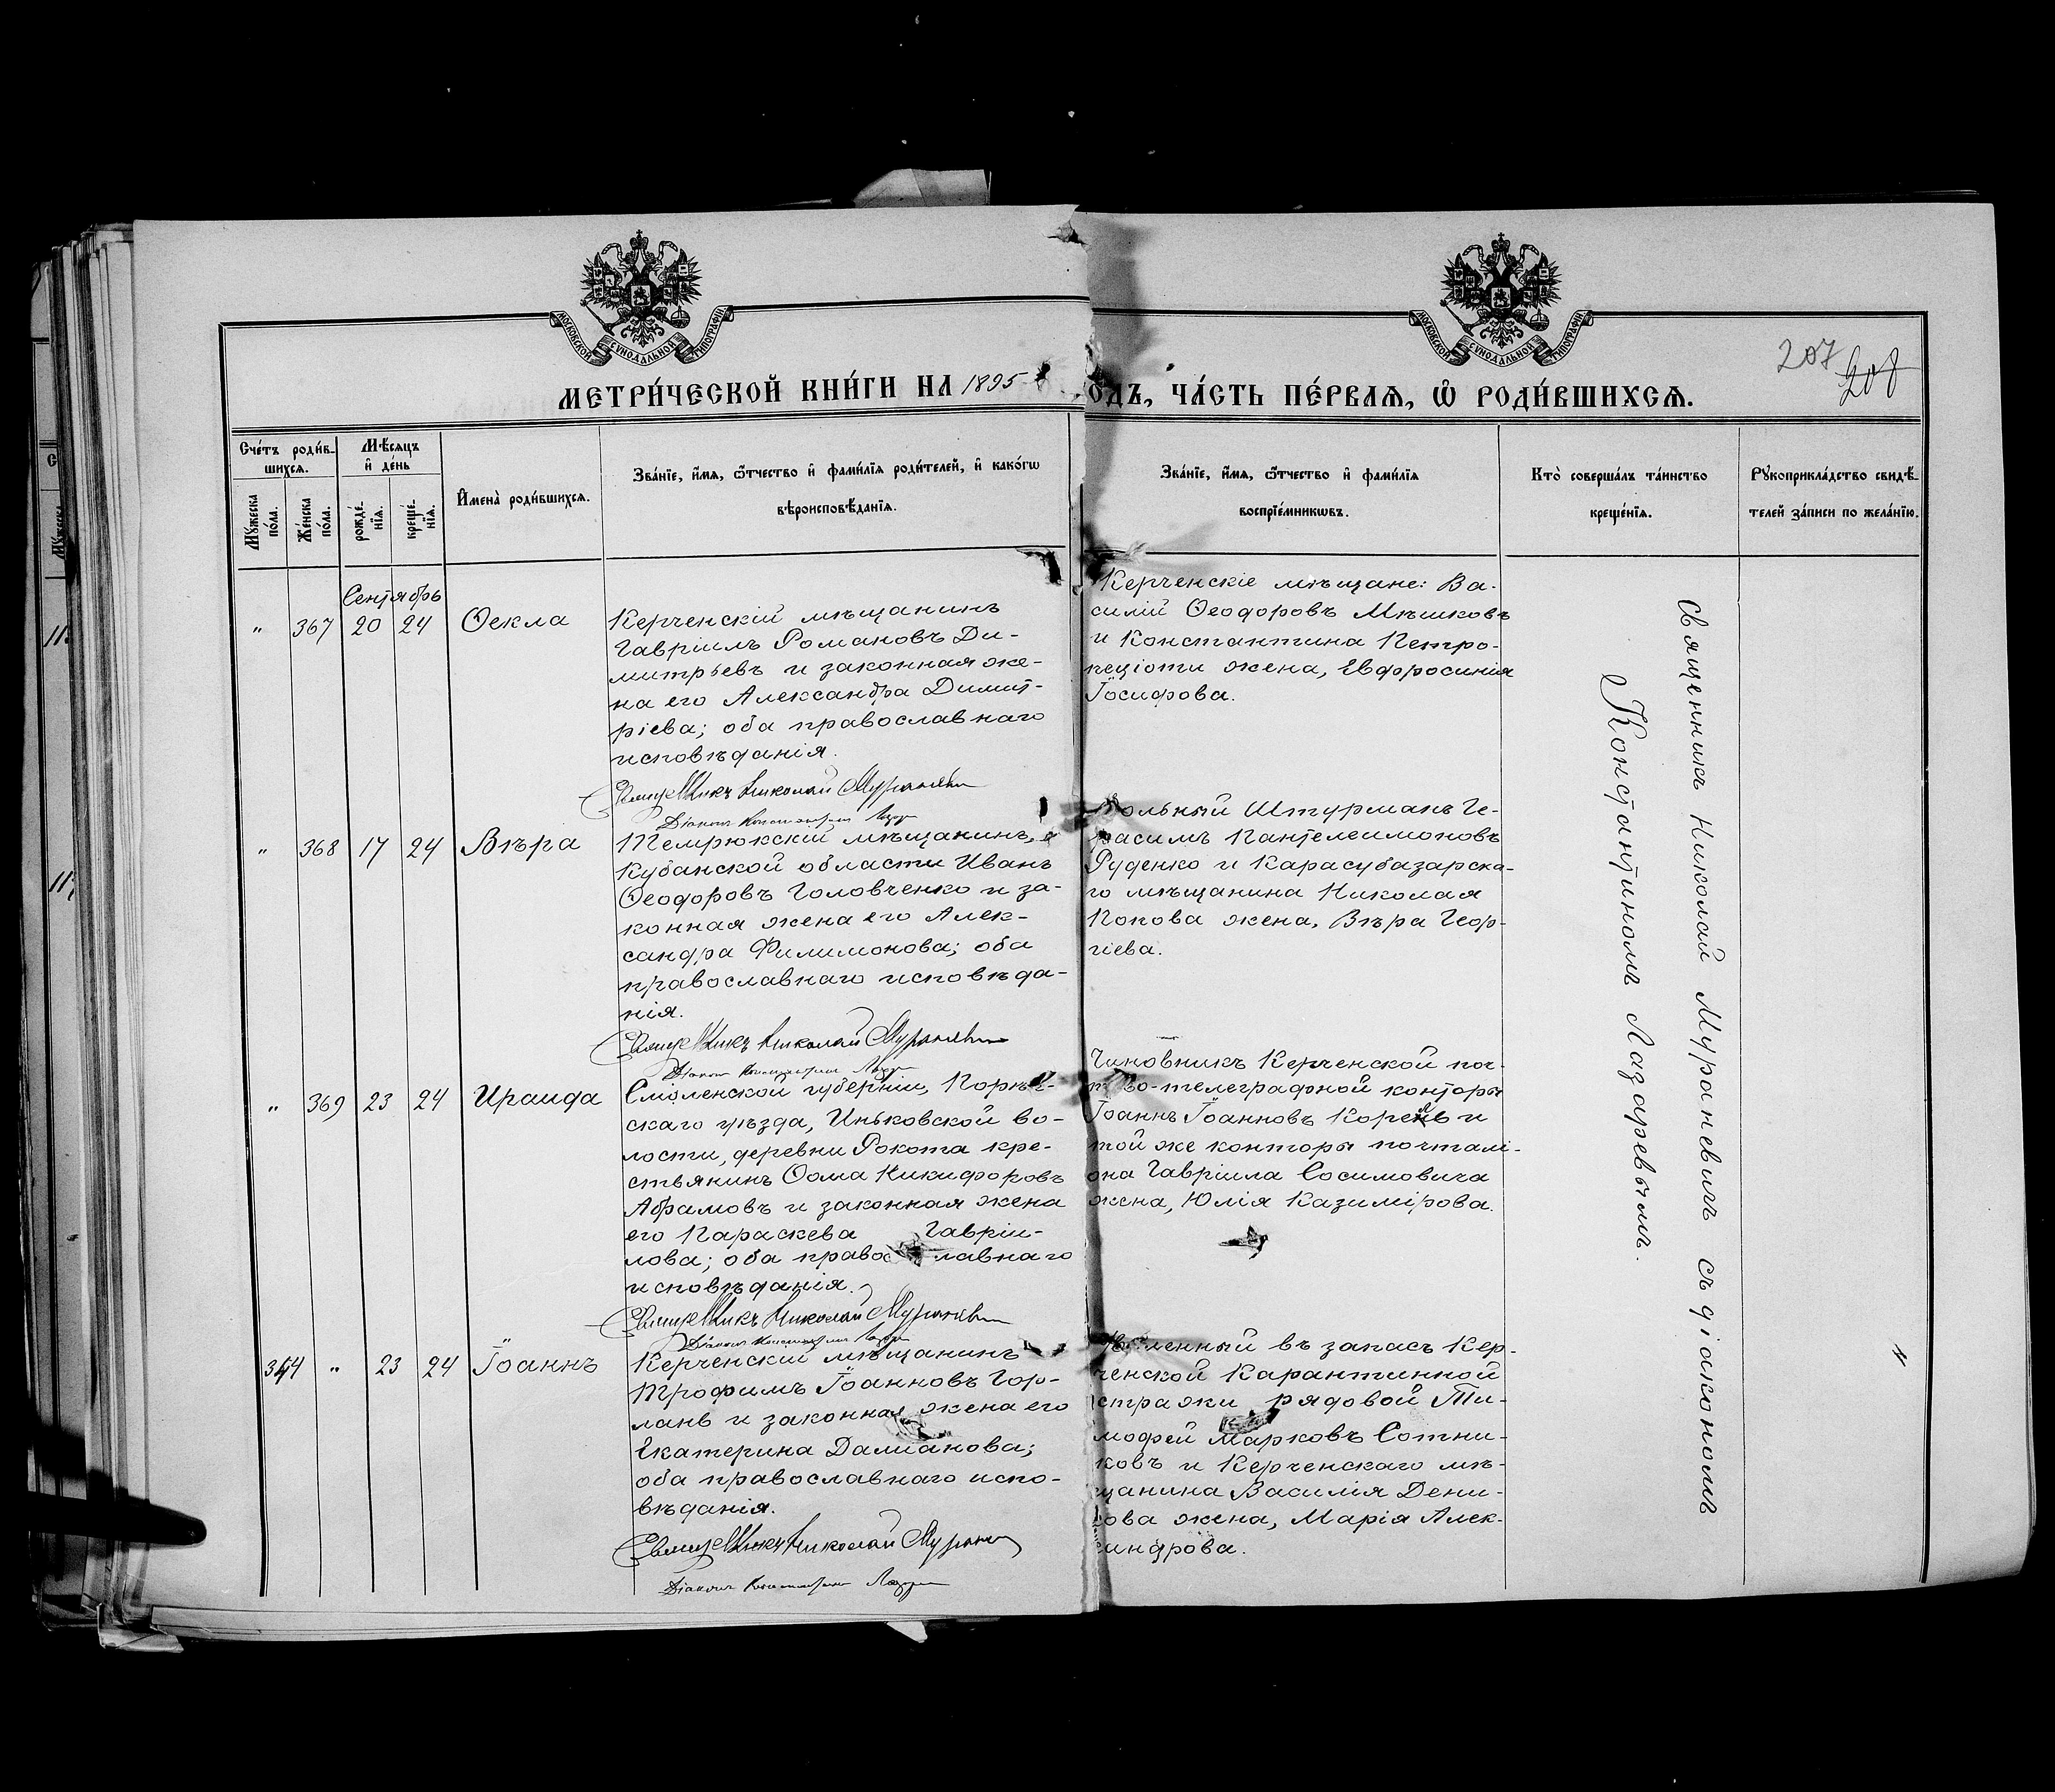 МОСКОВСКОЙ СѴНОДАЛЬНОЙ ТИПОГРАФІИ
МОСКОВСКОЙ СѴНОДАЛЬНОЙ ТИПОГРАФІИ
207
208
МЕТРИ́ЧЕСКОЙ КНИ́ГИ НА 1895 ОДЪ, ЧА́СТЬ ПЕ́РВАѦ, Ѡ҆ РОДИ́ВШИХСѦ.
Сче́тъ роди́в-
шихсѧ.
Мѣ́сѧцъ
и҆ де́нь
Мꙋ́жеска
по́ла.
Же́нска
по́ла.
рожде́-
нїѧ.
креще́-
нїѧ.
И҆мена̀ роди́вшихсѧ.
Зва́нїе, и҆́мѧ, ѻ҆́тчество и҆ фами́лїѧ роди́телей, и҆ како́гѡ
вѣроисповѣ́данїѧ.
Зва́нїе, и҆́мѧ, ѻ҆́тчество и҆ фами́лїѧ
воспрїе́мникѡвъ.
Кто̀ соверша́лъ та́инство
креще́нїѧ.
Рꙋкоприкла́дство свидѣ́-
телей за́писи по жела́нїю.
Сентябрь
" 367 20 24 Ѳекла
Керченскій мѣщанинъ
Гавріилъ Романовъ Ди-
митрьевъ и законная же-
на его Александра Димит-
ріева; оба православнаго
исповѣданія.
Священникъ Николай Мураневичъ
Діаконъ Константинъ
Керченскіе мѣщане: Ва-
силій Ѳеодоровъ Мѣшковъ
и Константина Петро-
пеціоти жена, Евфросинія
Іосифова.
" 368 17 24 Вѣра
Темрюкскій мѣщанинъ,
Кубанской области Иванъ
Ѳеодоровъ Головченко и за-
конная жена его Алек-
сандра Филимонова; оба
православнаго исповѣда-
нія.
Священникъ Николай Мураневичъ
Діаконъ Константинъ
Вольный Штурманъ Ге-
расимъ Пантелеимоновъ
Руденко и Карасубазарска-
го мѣщанина Николая
Попова жена, Вѣра Геор-
гіева.
" 369 23 24 Ираида
Смоленской губерніи, Порѣч-
скаго уѣзда, Иньковской во-
лости, деревни Рокота кре-
стьянинъ Ѳома Никифоровъ
Абрамовъ и законная жена
его Параскева Гавріи-
лова; оба православнаго
исповѣданія.
Священникъ Николай Мураневичъ
Діаконъ Константинъ
Чиновникъ Керченской поч-
тово-телеграфной конторы
Іоаннъ Іоанновъ и
той же конторы почталі-
она Гавріила Сосимовича
жена, Юлія Казимірова.
344 " 23 24 Іоаннъ
Керченскій мѣщанинъ
Трофимъ Іоанновъ Гор-
лань и законная жена его
Екатерина Даміанова;
оба православнаго испо-
вѣданія.
Священникъ Николай
Діаконъ Константинъ
въ запасъ Кер-
ченской Карантинной
стражи рядовой Ти-
мофей Марковъ Сотни-
ковъ и Керченскаго мѣ-
щанина Василія Дени-
сова жена, Марія Алек-
сандрова.
Священникъ Николай Мураневичъ съ діакономъ
Константиномъ Лазаревымъ.